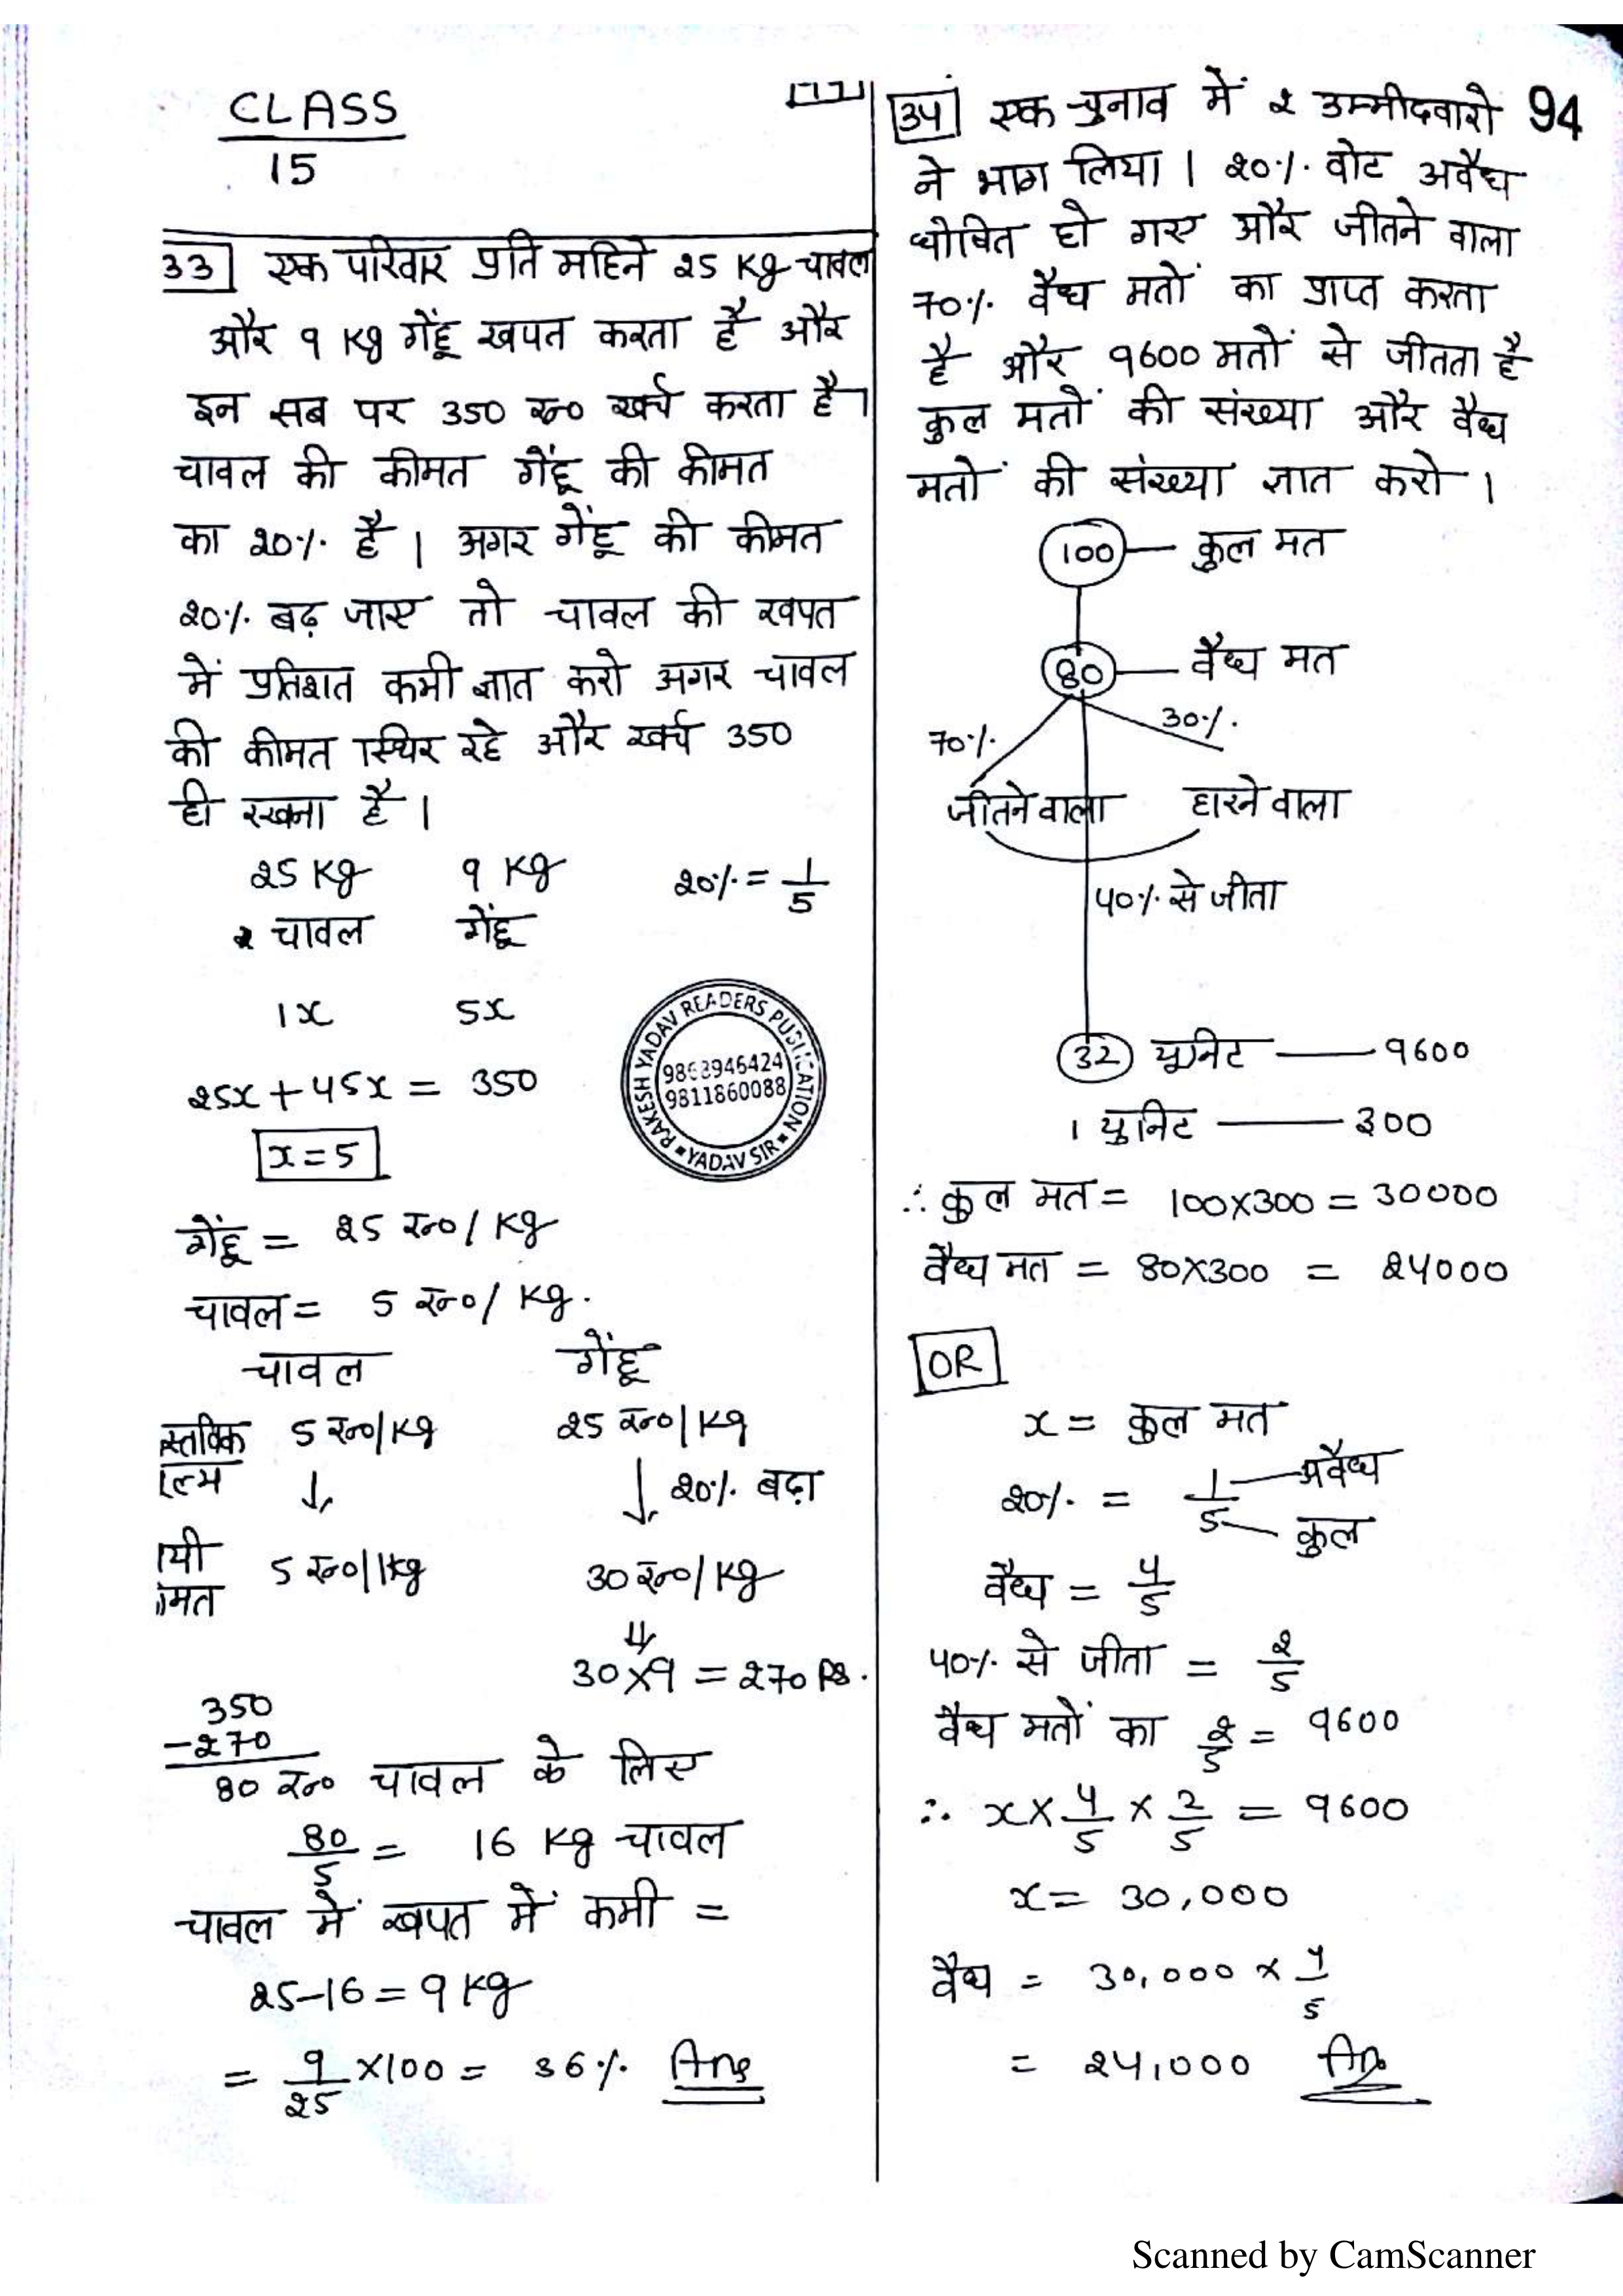 CLASS
15
33 एक परिवार प्रति महिने 25 Kg चावल
और 9 Kg गेंहू खपत करता है और
इन सब पर 350 रू० खर्च करता है।
चावल की कीमत गेंहू की कीमत
का 20% है। अगर गेंहू की कीमत
20% बढ़ जाए तो चावल की खपत
में प्रतिशत कमी ज्ञात करो अगर चावल
की कीमत स्थिर रहे और खर्च 350
ही रखना है।
25 Kg 9 Kg 20% = 1/5
चावल गेंहू
1x 5x
25x + 45x = 350
x = 5
RAKESH YADAV READERS PUBLICATION
9868946424
9811860088
YADAV SIR
गेंहू = 25 रू०/Kg
चावल = 5 रू०/Kg.
चावल गेंहू
स्तविक 5 रू०/Kg 25 रू०/Kg
↓ ↓ 20% बढ़ा
यी 5 रू०/Kg 30 रू०/Kg
मत
⇓
30×9 = 270 Rs.
350
-270
80 रू० चावल के लिए
80/5 = 16 Kg चावल
चावल में खपत में कमी =
25-16 = 9 Kg
= 9/25 ×100 = 36% Ans
34 एक चुनाव में 2 उम्मीदवारो 94
ने भाग लिया। 20% वोट अवैध
घोषित हो गए और जीतने वाला
70% वैध मतों का प्राप्त करता
है और 9600 मतों से जीतता है
कुल मतों की संख्या और वैध
मतों की संख्या ज्ञात करो।
100 — कुल मत
80 — वैध मत
70% 30%
जीतने वाला हारने वाला
40% से जीता
32 यूनिट — 9600
1 युनिट — 300
∴ कुल मत = 100×300 = 30000
वैध मत = 80×300 = 24000
OR
x = कुल मत
20% = 1/5 अवैध
कुल
वैध = 4/5
40% से जीता = 2/5
वैध मतों का 2/5 = 9600
∴ x × 4/5 × 2/5 = 9600
x = 30,000
वैध = 30,000 × 4/5
= 24,000 Ans
Scanned by CamScanner